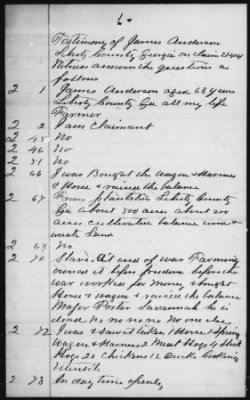 6
Testimony of James Anderson
Liberty County Georgia on claim 21414
Witness answers the questions as
follows
2 1 James Anderson aged 68 years
Liberty County Ga all my life
Farmer
2 2 I am Claimant
2 45 No
2 46 No
2 51 No
2 66 I was Bought the Wagon & Harness
& Horse & raised the balance
2 67 From plantation Liberty County
Ga about 500 acres about 200
acres cultivation balance wood &
waste Land
2 68 No
2 70 Slave. At end of war Farming
owned it before freedom before the
war worked for money & bought
Horse & wagon & raised the balance
Major Porter Savannah he is
dead No no no no No one else
2 72 I was & saw it taken 1 Horse 1 Spring
Wagon & Harness 2 Meat Hogs 4 Stock
Hogs 20 Chickens 12 Ducks Cooking
Utensils
2 73 In day time openly